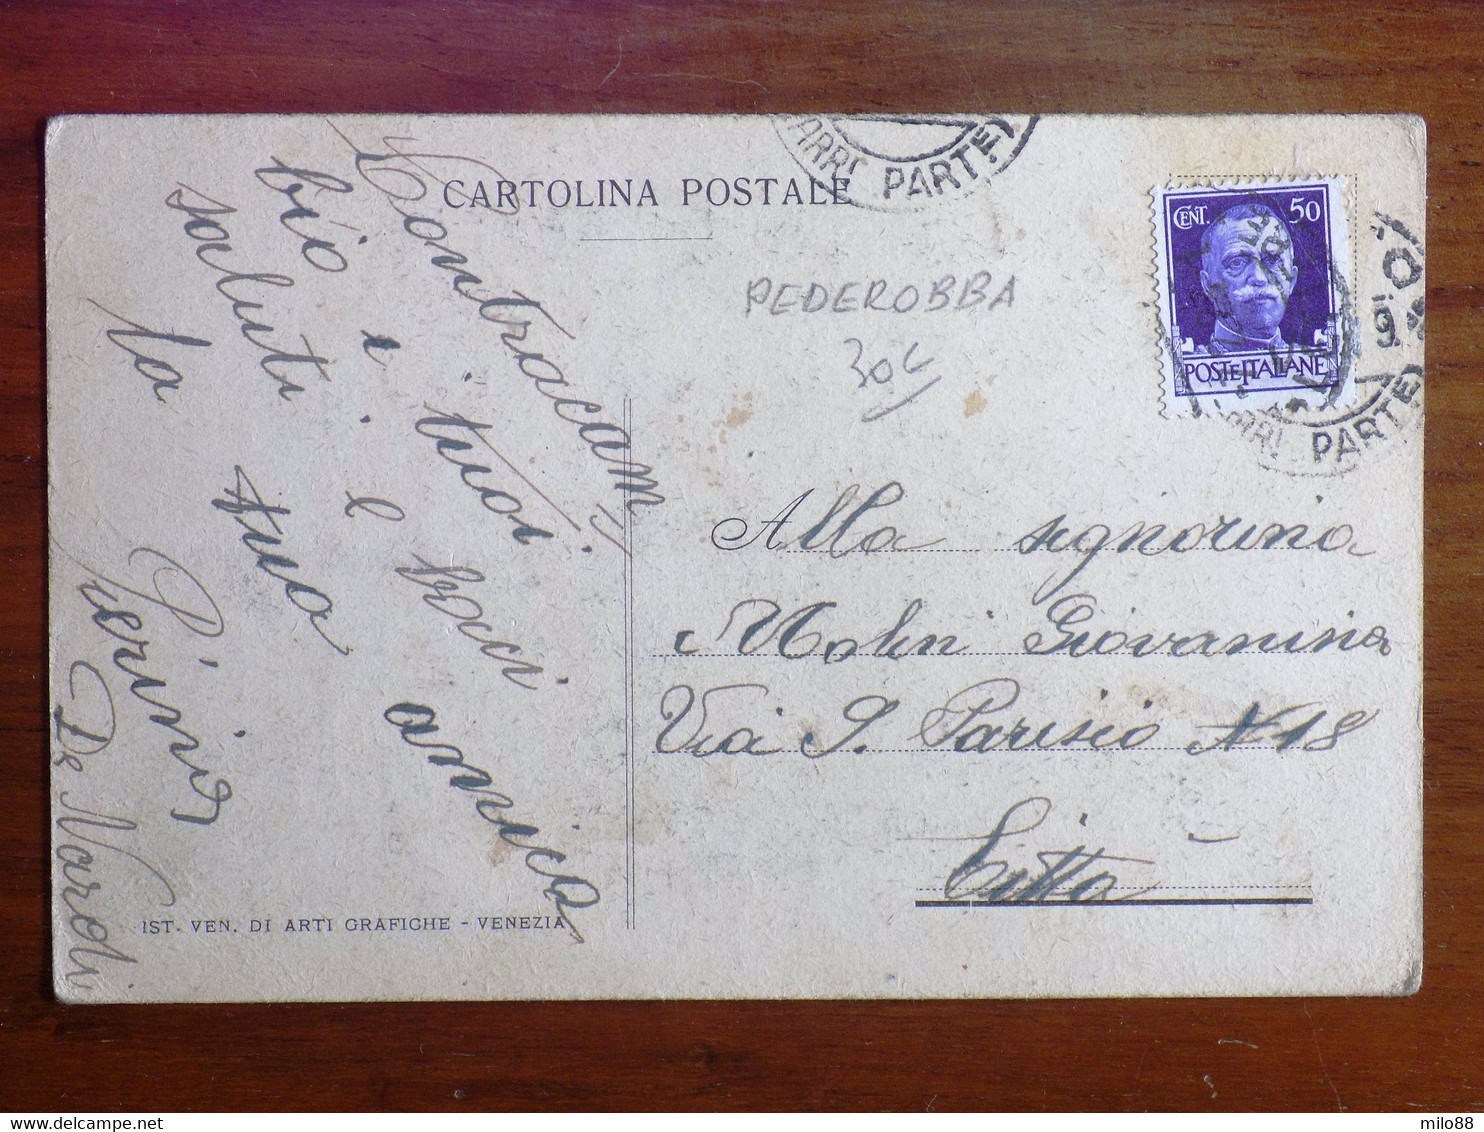 CARTOLINA POSTALE
Contracam
bio i tuoi
saluti e baci
la tua amica
Pierina
De Nardi
PEDEROBBA
30c
CENT. 50
POSTE ITALIANE
ARRI PARTE
ARRI PARTE
Alla signorina
Molin Giovannina
Via S. Parisio N 18
Città
IST. VEN. DI ARTI GRAFICHE - VENEZIA
milo88